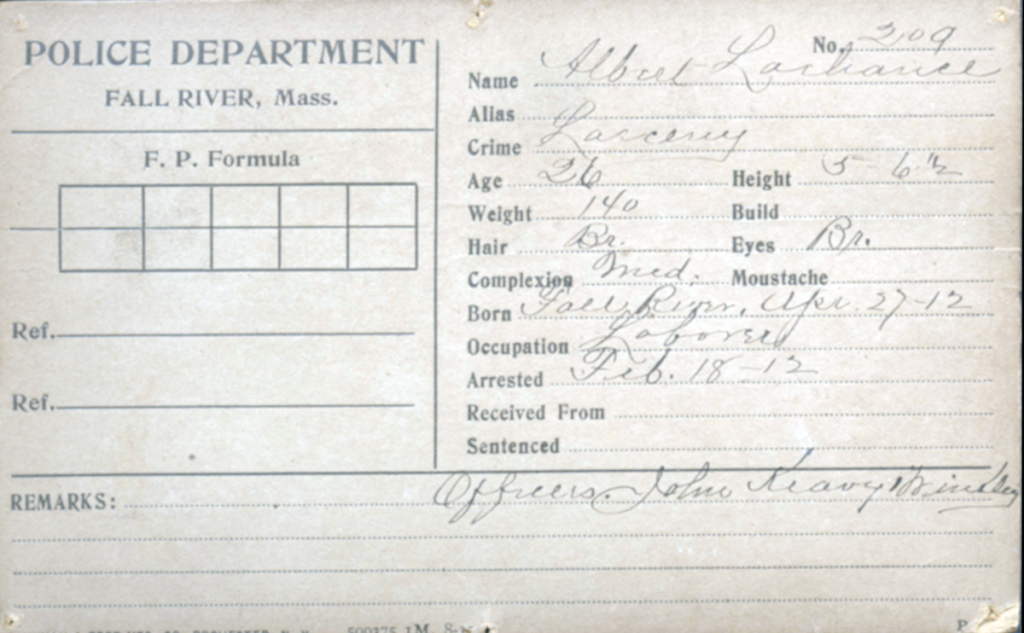 POLICE DEPARTMENT
FALL RIVER, Mass.
F. P. Formula
Ref.
Ref.
No. 209
Name Albert Lachance
Alias
Crime Larceny
Age 26 Height 5-6 1/2
Weight 140 Build
Hair Br. Eyes Br.
Complexion Med. Moustache
Born Fall River, Apr. 27-12
Occupation Laborer
Arrested Feb. 18-12
Received From
Sentenced
REMARKS: Officers. John Keavy
P